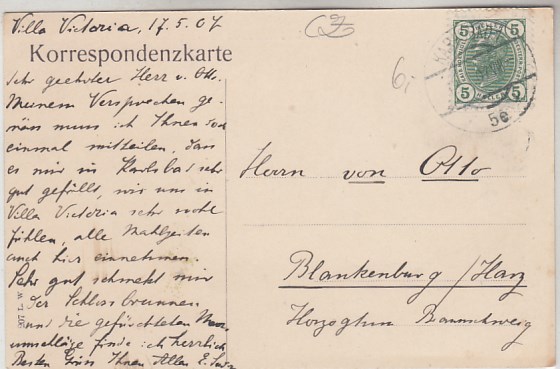 Villa Victoria, 17.5.07
Korrespondenzkarte
Sehr geehrter Herr v. Otto.
Meinem Versprechen ge-
mäss muss ich Ihnen
einmal mitteilen, dass
es mir in Karlsbad sehr
gut gefällt, wir uns in
Villa Victoria sehr wohl
fühlen, alle Mahlzeiten
auch hier einnehmen.
Sehr gut schmekt mir
der Schlossbrunnen
und die gefürchteten
umschläge finde ich herrlich
Besten Gruss Ihnen Allen E.
Herrn von Otto
Blankenburg / Harz
Herzogtum Braunschweig
6,-
CZ
5 5
5 5
5e